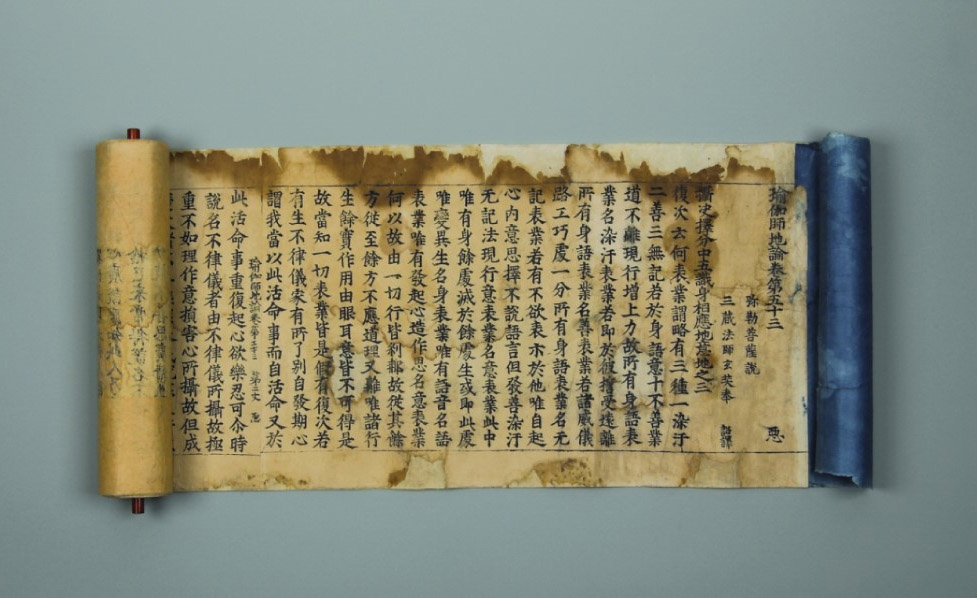 瑜伽師地論卷第五十三 惡
弥勒菩薩說
三蔵法師玄奘奉 詔譯
攝决擇分中五識身相應地意地之三
復次云何表業謂略有三種一染汙
二善三無記若於身語意十不善業
道不離現行增上力故所有身語表
業名染汙表業若即於彼誓受遠離
所有身語表業名善表業若諸威儀
路工巧處一分所有身語表業名无
記表業若有不欲表示於他唯自起
心內意思擇不說語言但發善染汙
无記法現行意表業名意表業此中
唯有身餘處滅於餘處生或即此處
唯變異生名身表業唯有語音名語
表業唯有發起心造作思名意表業
何以故由一切行皆刹那故從其餘
方徙至餘方不應道理又離唯諸行
生餘實作用由眼耳意皆不可得是
故當知一切表業皆是假有復次若
有生不律儀家有所了別自發期心
謂我當以此活命事而自活命又於
瑜伽師地論卷第五十三 第二丈 惡
此活命事重復起心欲樂忍可尒時
說名不律儀者由不律儀所攝故極
重不如理作意損害心所攝故但成